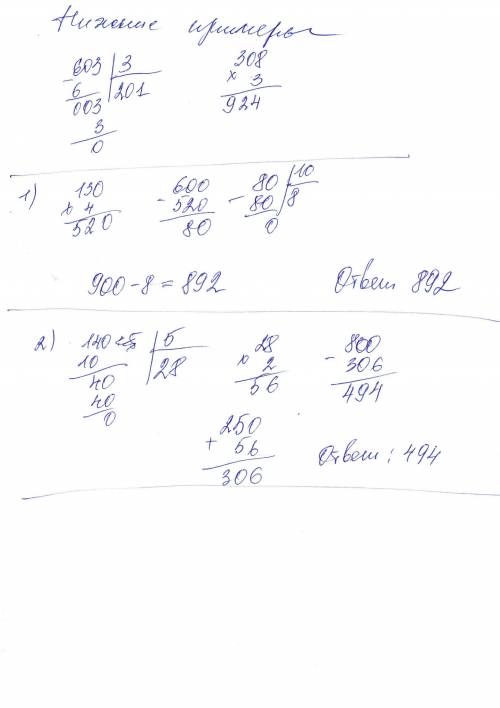 Нижние примеры
603 | 3
- 6 | 201
003
3
0
308
× 3
924
1)
130
× 4
520
600
- 520
80
80 | 10
- 80 | 8
0
900 - 8 = 892
Ответ 892
2)
140 | 5
10 | 28
40
40
0
28
× 2
56
800
- 306
494
250
+ 56
306
Ответ: 494